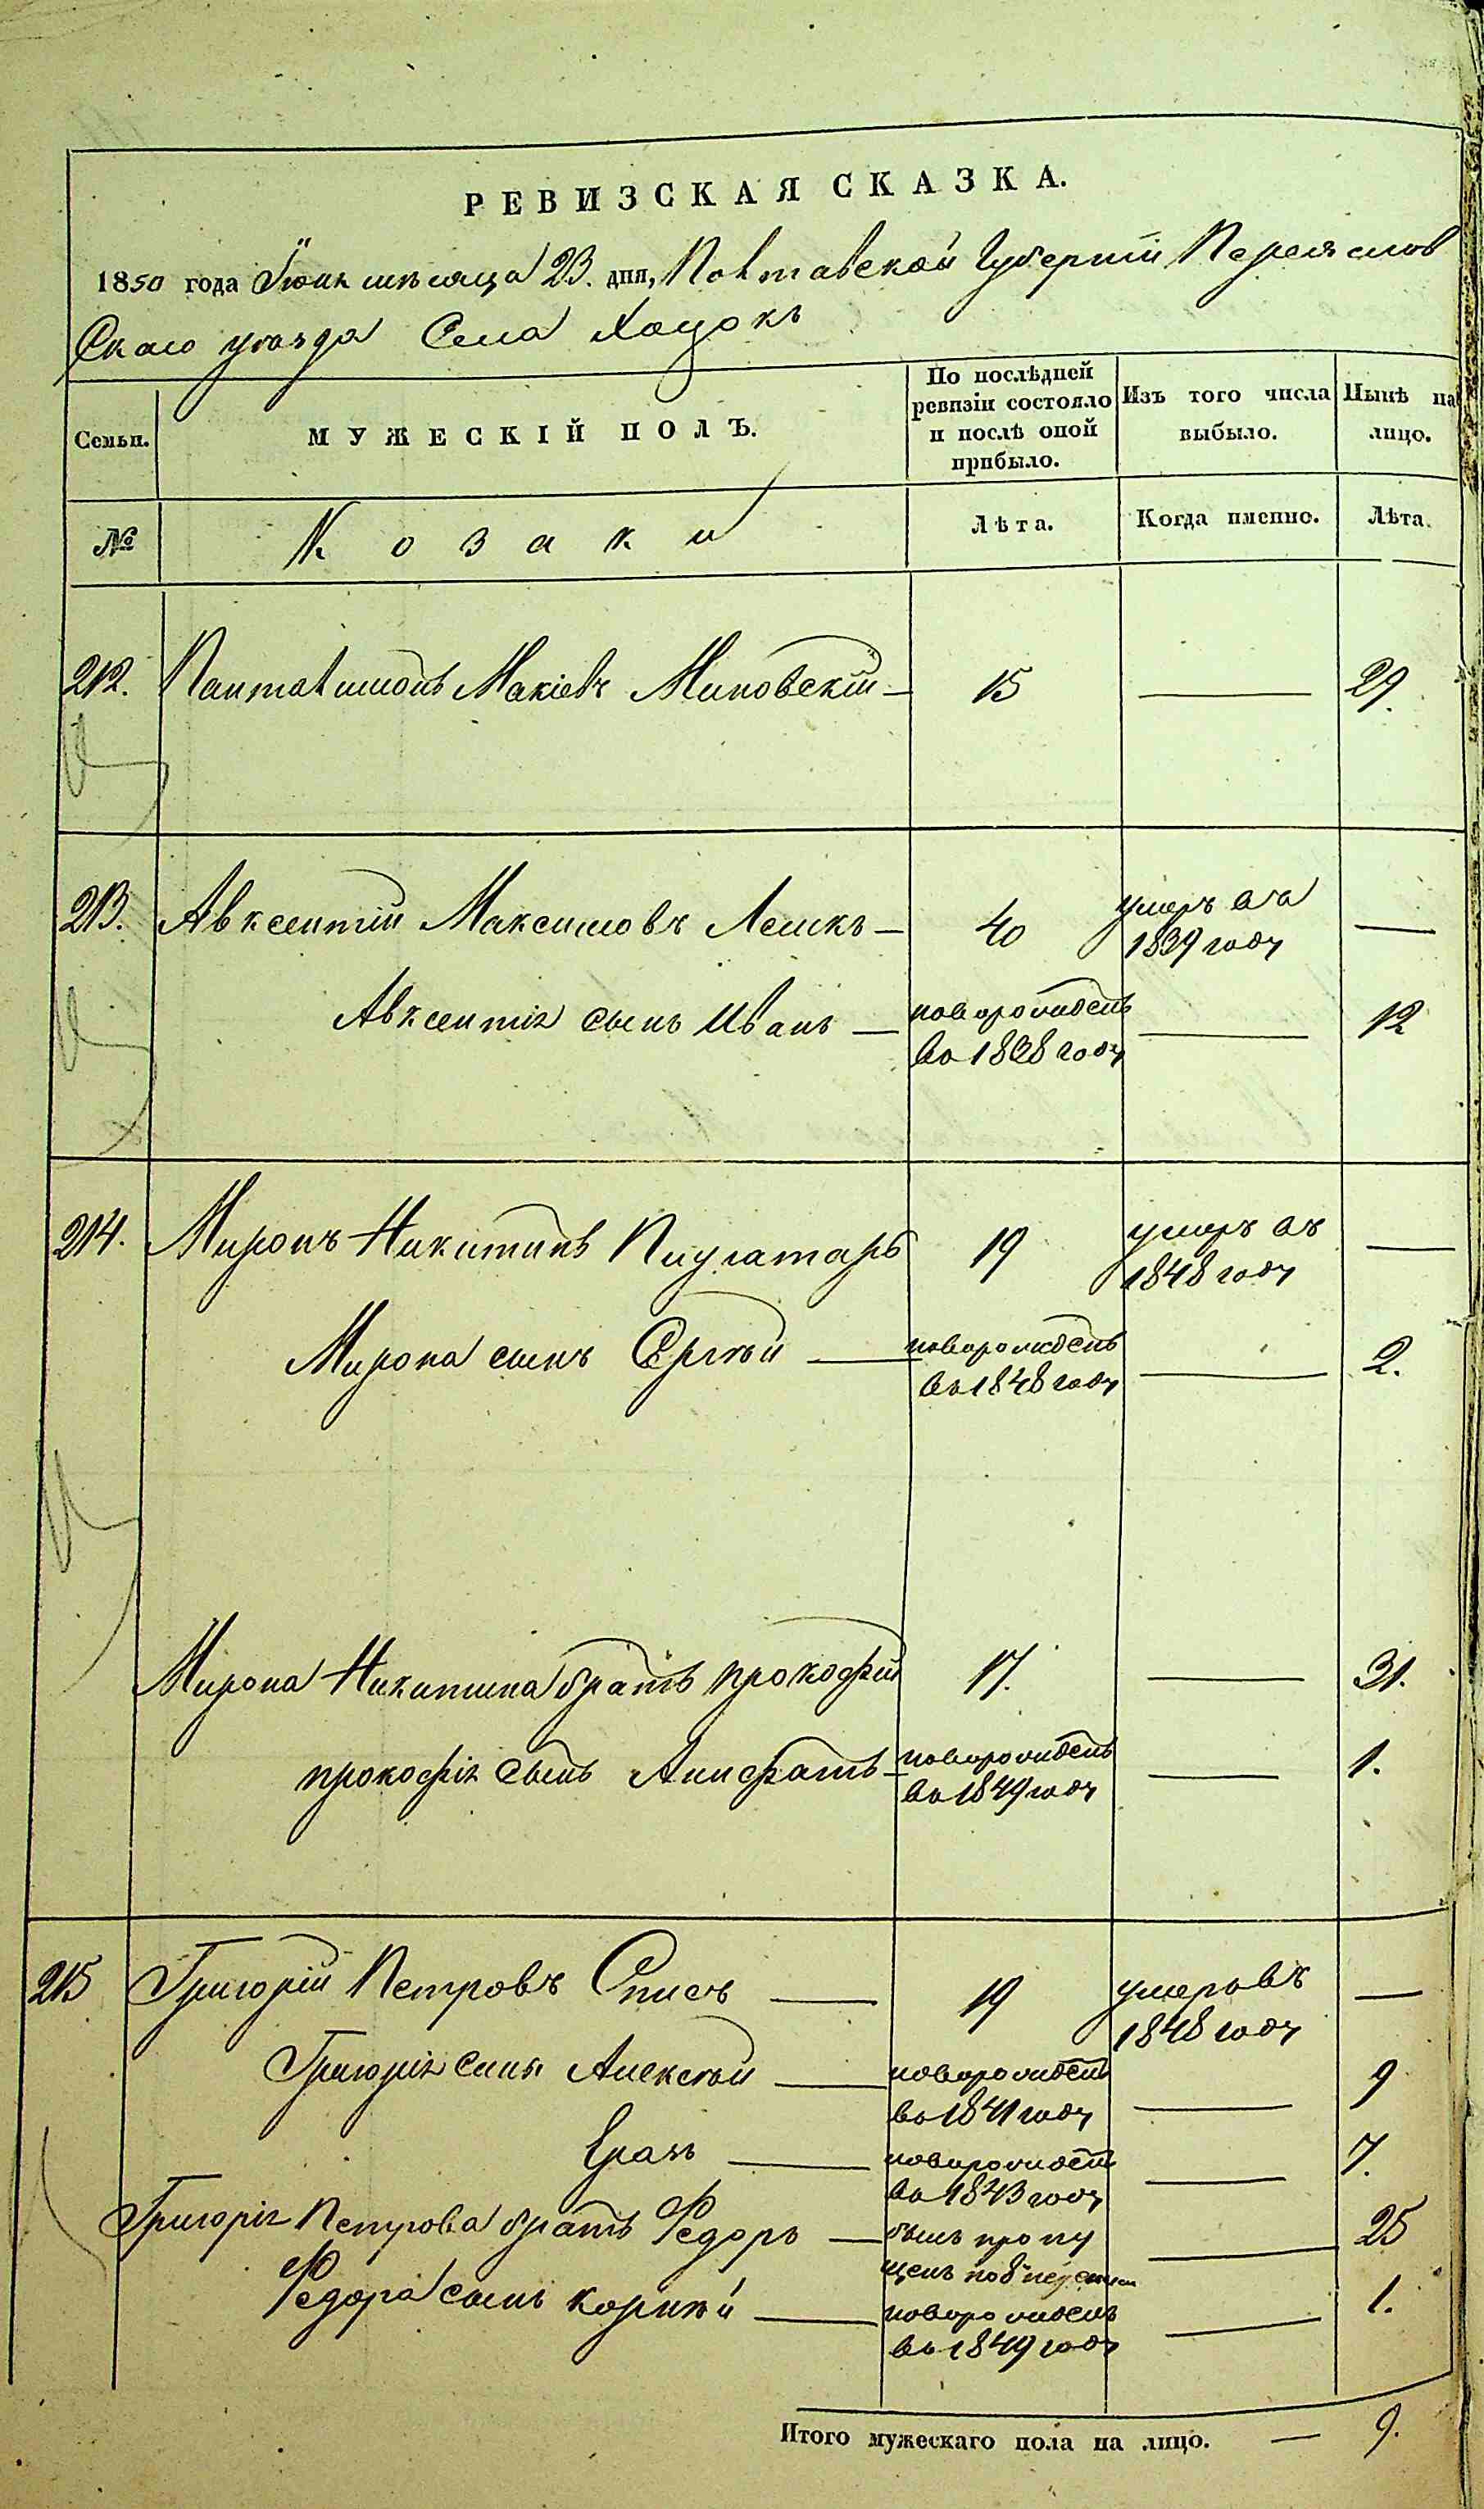 РЕВИЗСКАЯ СКАЗКА.
1850 года Іюня мѣсяца 23. дня, Полтавской Губерніи Переяслов
Скаго уѣзда Села Хоцокъ
Семьи.
МУЖЕСКІЙ ПОЛЪ.
По послѣдней ревизіи состояло и послѣ оной прибыло.
Изъ того числа выбыло.
Нынѣ на лицо.
№
Козаки
Лѣта.
Когда именно.
Лѣта.
212. Панталимонъ Макіевъ — 15 — 29.
213. Авксентій Максимовъ — 40 умеръ въ 1839 году —
Авксентія сынъ Иванъ — новорожденъ въ 1838 году — 12
214. Миронъ Никитинъ 19 умеръ въ 1848 году —
Мирона сынъ Сергѣй — новорожденъ въ 1848 году — 2.
Мирона Никитина братъ прокофій 17. — 31.
прокофія сынъ — новорожденъ въ 1849 году — 1.
215 Григорій Петровъ Списъ — 19 умеръ въ 1848 году —
Григорія сынъ Алексѣй — новорожденъ въ 1841 году — 9
— новорожденъ въ 1843 году — 7.
Григорія Петрова братъ Федоръ — былъ пропущенъ — 25
Федора сынъ корнѣй — новорожденъ въ 1849 году — 1.
Итого мужескаго пола на лицо. — 9.